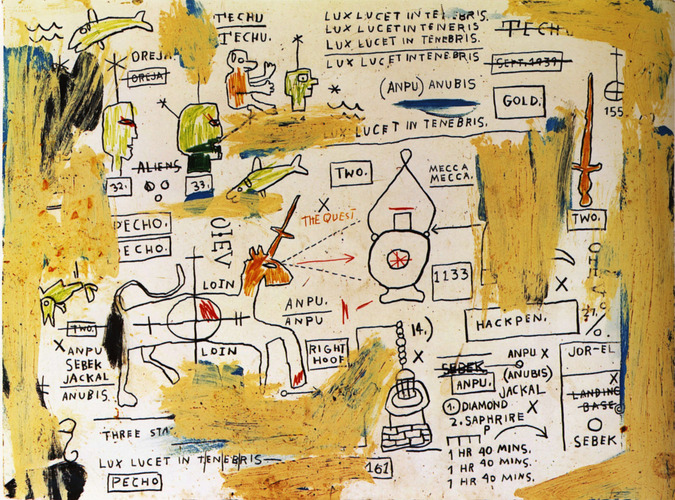 TECHU
TECHU.
LUX LUCET IN TENEBRIS.
LUX LUCET INTENERIS
LUX LUCET IN TENEBRIS.
LUX LUCET INTENEBRIS
TECH
SEPT. 1939
OREJA
OREJA
(ANPU) ANUBIS
GOLD.
155
LUX LUCET IN TENEBRIS.
ALIENS
32.
33.
TWO.
MECCA
MECCA.
TWO.
THE QUEST
PECHO.
ECHO.
LOIN
1133
ANPU.
ANPU
HACKPEN.
TWO.
LOIN
RIGHT
HOOF
14.)
X ANPU
SEBEK
JACKAL
ANUBIS.
SEBEK
ANPU.
ANPU X
(ANUBIS)
JACKAL
JOR-EL
LANDING
BASE
SEBEK
1. DIAMOND X
2. SAPHRIRE
P
1 HR 40 MINS.
1 HR 40 MINS.
1 HR 40 MINS.
THREE STA
LUX LUCET IN TENEBRIS
161
PECHO